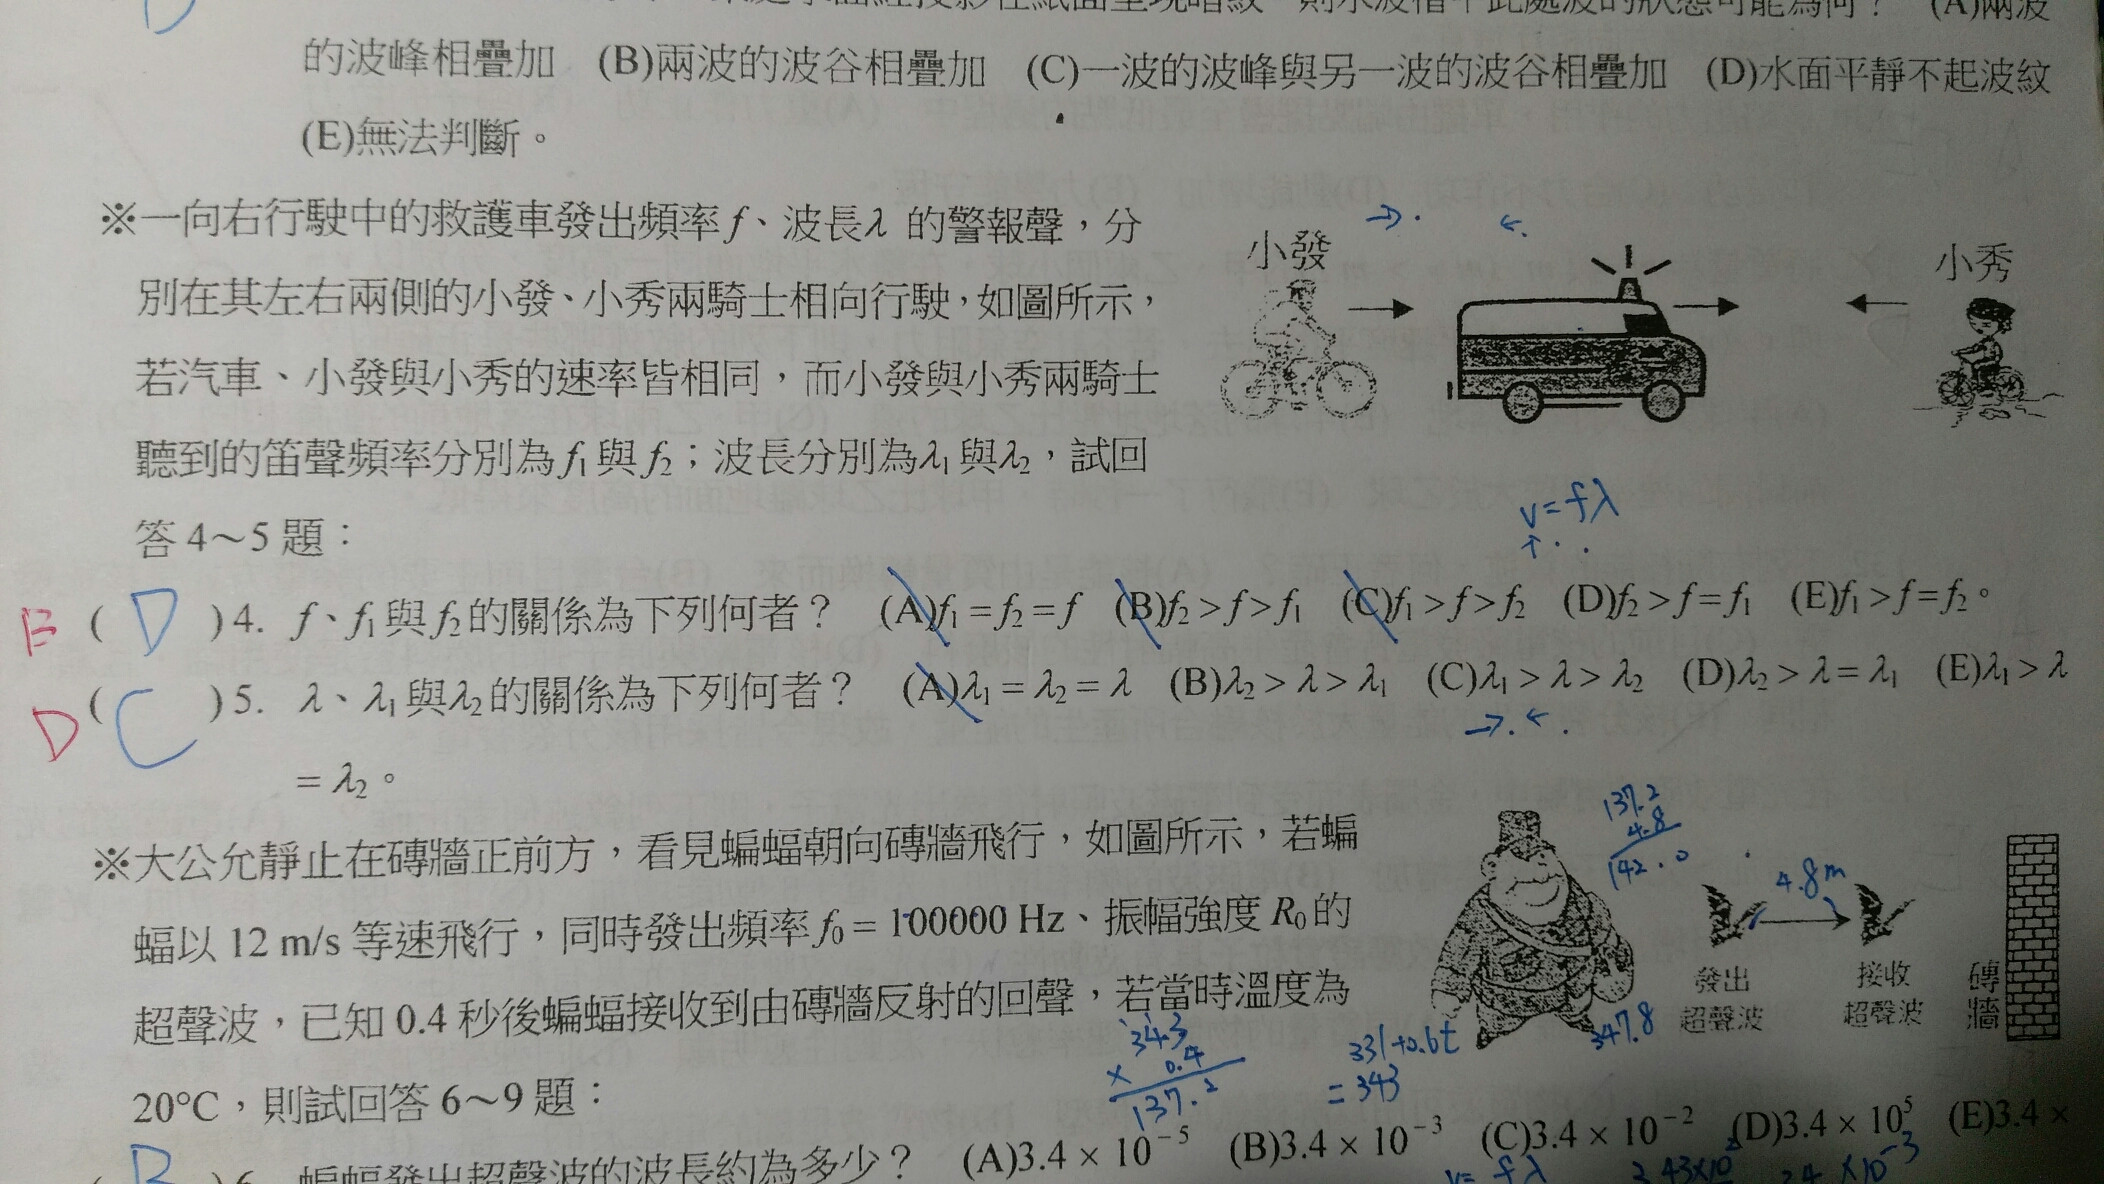 則水波槽中此處波的狀態可能為何？ (A)兩波
的波峰相疊加 (B)兩波的波谷相疊加 (C)一波的波峰與另一波的波谷相疊加 (D)水面平靜不起波紋
(E)無法判斷。
※一向右行駛中的救護車發出頻率f、波長λ 的警報聲，分
別在其左右兩側的小發、小秀兩騎士相向行駛，如圖所示，
若汽車、小發與小秀的速率皆相同，而小發與小秀兩騎士
聽到的笛聲頻率分別為f₁與f₂；波長分別為λ₁與λ₂，試回
答4～5題：
小發
小秀
v=fλ
B ( D )4. f、f₁與f₂的關係為下列何者？ (A)f₁=f₂=f (B)f₂>f>f₁ (C)f₁>f>f₂ (D)f₂>f=f₁ (E)f₁>f=f₂。
D ( C )5. λ、λ₁與λ₂的關係為下列何者？ (A)λ₁=λ₂=λ (B)λ₂>λ>λ₁ (C)λ₁>λ>λ₂ (D)λ₂>λ=λ₁ (E)λ₁>λ
=λ₂。
※大公允靜止在磚牆正前方，看見蝙蝠朝向磚牆飛行，如圖所示，若蝙
蝠以12 m/s等速飛行，同時發出頻率f₀=100000 Hz、振幅強度R₀的
超聲波，已知0.4秒後蝙蝠接收到由磚牆反射的回聲，若當時溫度為
20°C，則試回答6～9題：
137.2
4.8
142.0
4.8m
發出
超聲波
接收
超聲波
磚
牆
347.8
343
× 0.4
137.2
331+0.6t
=343
B )6. 蝙蝠發出超聲波的波長約為多少？ (A)3.4×10⁻⁵ (B)3.4×10⁻³ (C)3.4×10⁻² (D)3.4×10⁵ (E)3.4×
v=fλ